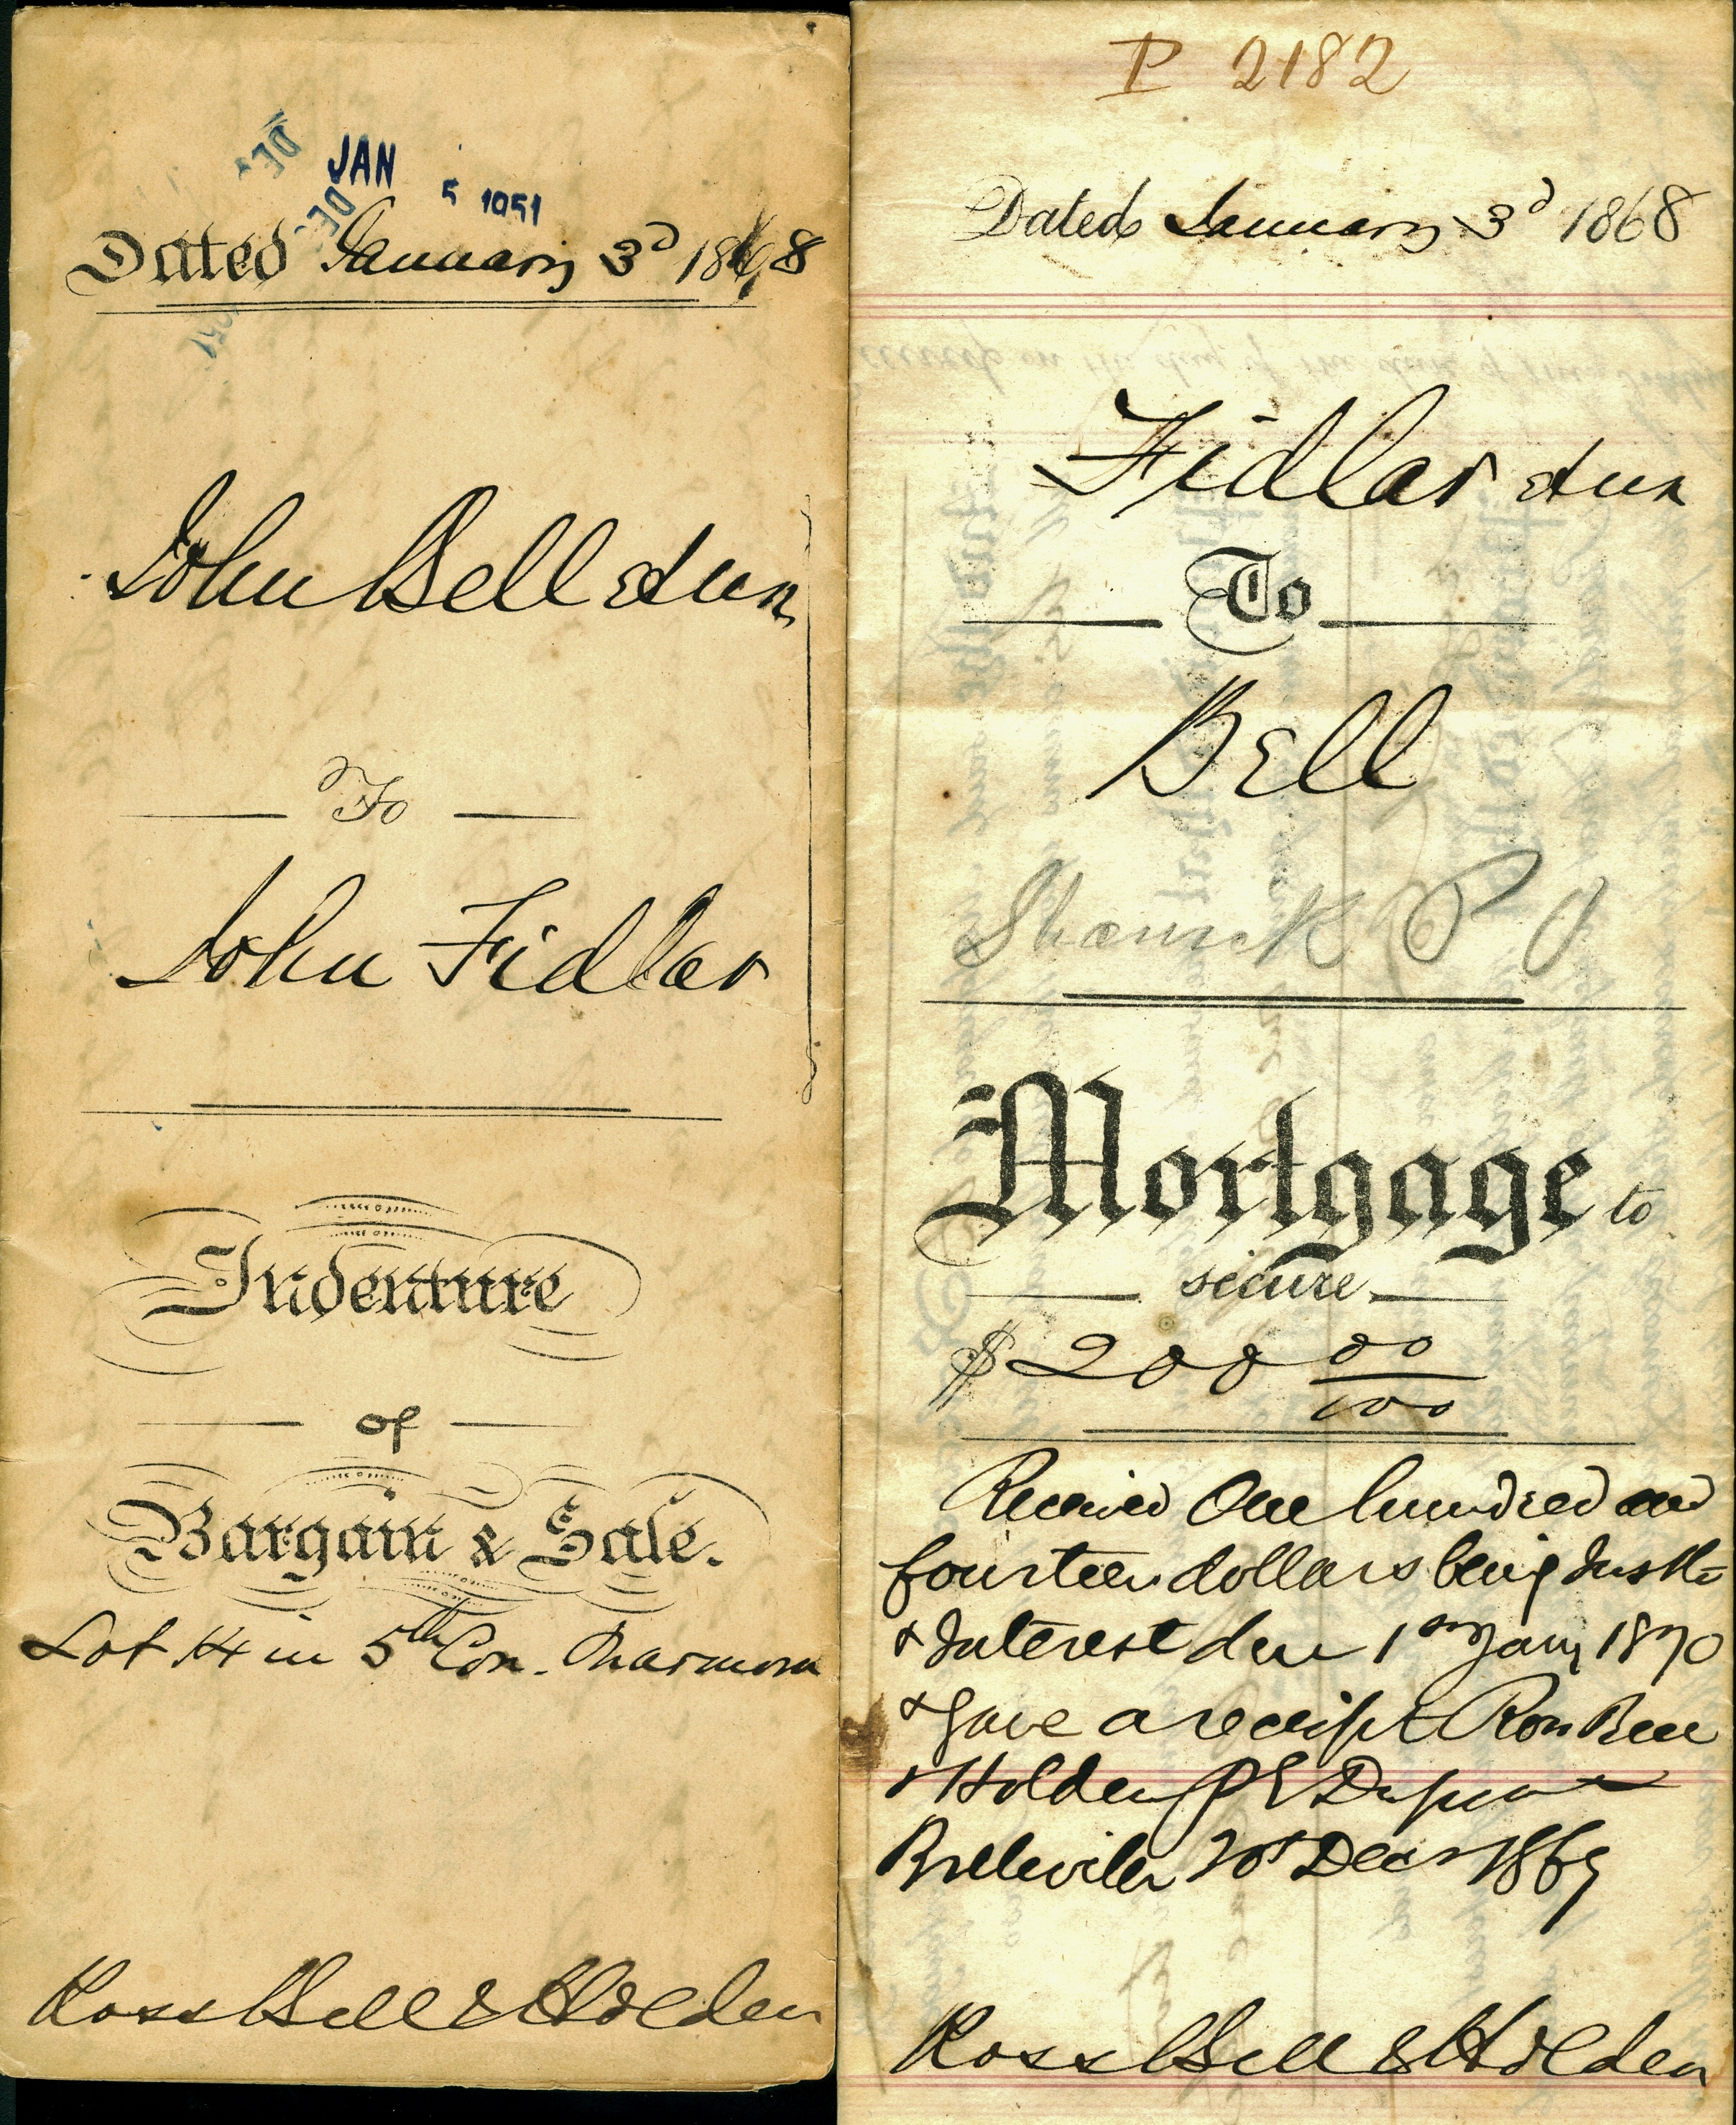 JAN 5 1951
DEC
DEC
1951
Dated January 3d 1868
John Bell & ux
To
John Fidlar
Indenture
of
Bargain & Sale.
Lot 14 in 5th Con. Marmora
Ross Bell & Holden
P 2182
Dated January 3d 1868
Fidlar & ux
To
Bell
P O
Mortgage to
secure
$200 00/100
Received One hundred and
fourteen dollars being Instt
& Interest due 1st Jany 1870
& gave a receipt Ross Bell
& Holden P
Belleville Dec 1869
Ross Bell & Holden